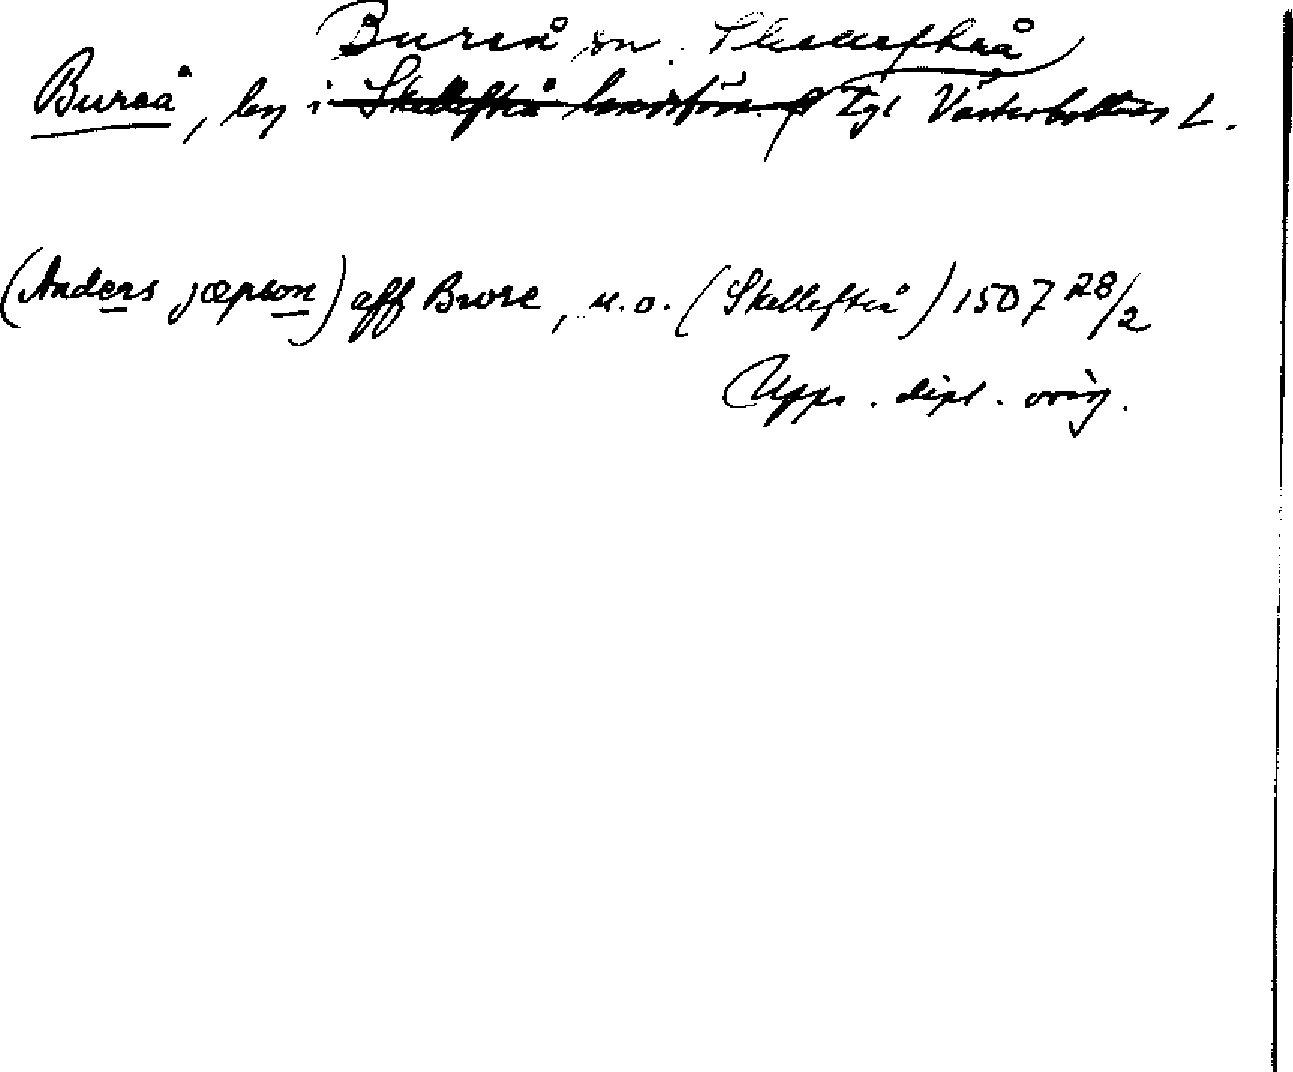 Bureå sn. Skellefteå
Bureå, by i Skellefteå landsförs. Tgl Västerbottens L.
(Anders jœpson) aff Brwre, u.o. (Skellefteå) 1507 28/2
Upps. dipl. orig.